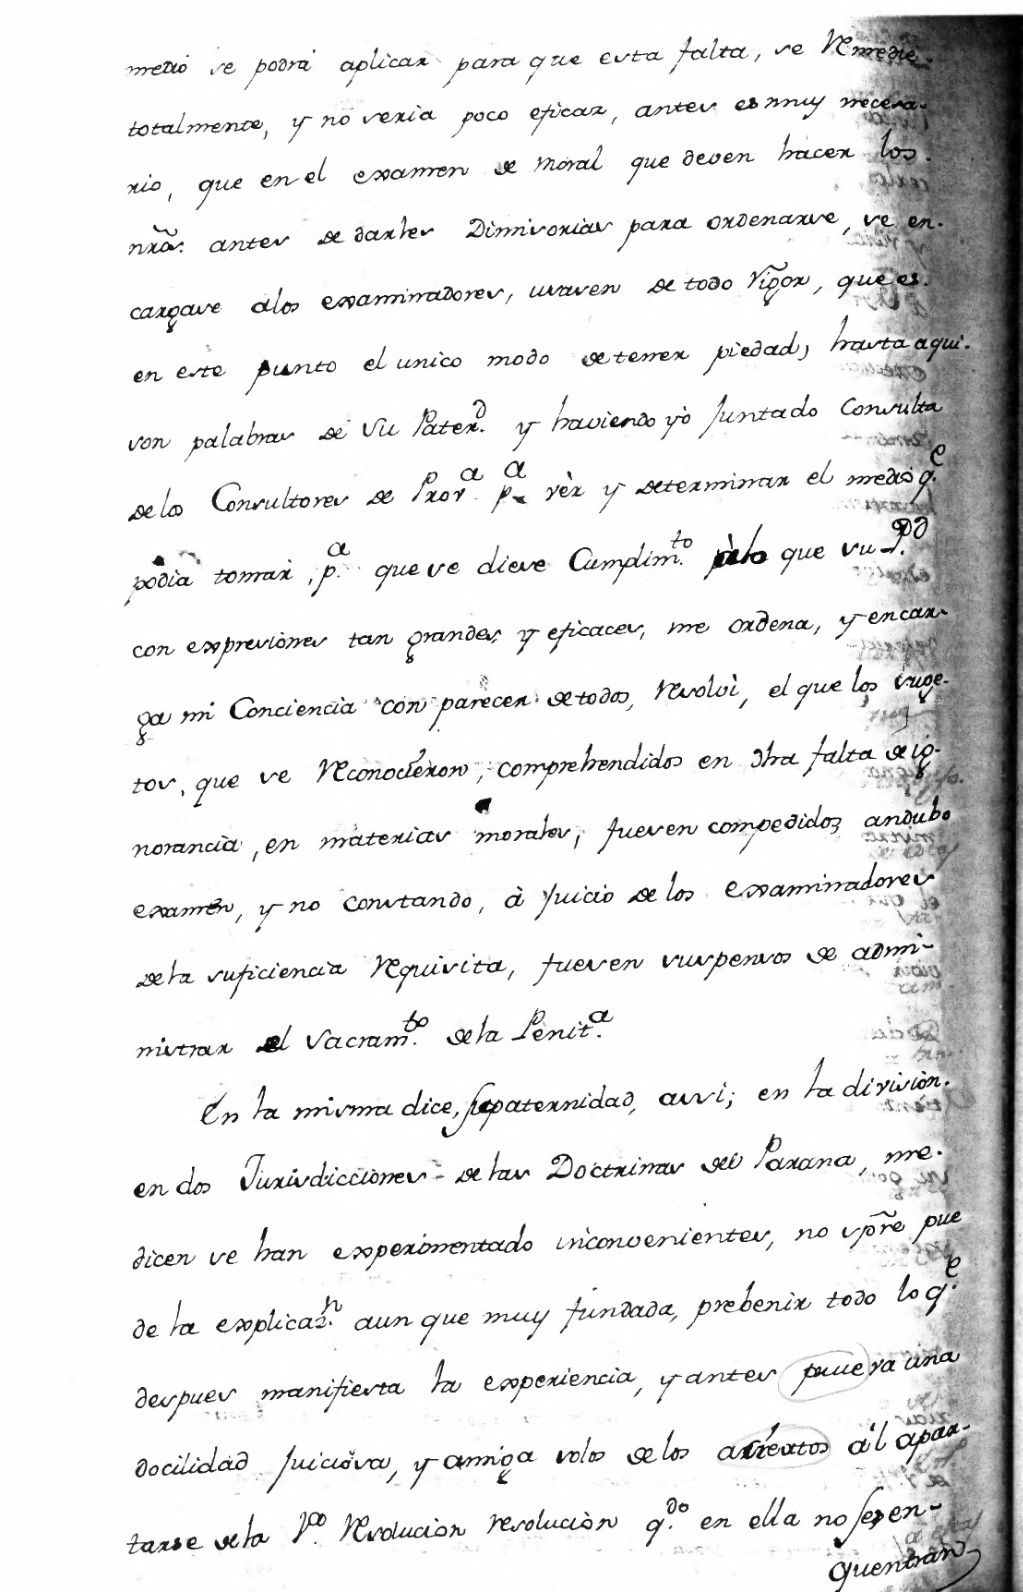 medio se podrá aplicar para que esta falta, se Remedie
totalmente, y no seria poco eficaz, antes es muy necesa-
rio, que en el examen de moral que deven hacer los
nrõs. antes de darles Dimisorias para ordenarse, se en-
cargase alos examinadores, usasen de todo Rigor, que es
en este punto el unico modo de tener piedad, hasta aqui
son palabras de Su Paterd. y haviendo yo Juntado Consulta
de los Consultores de Prova. pa. vèr y determinar el medio qe.
podia tomar, pa. que se diese Cumplimto. à lo que su Pd.
con expresiones tan grandes, y eficaces, me ordena, y encar-
ga mi Conciencia con parecer de todos, Resolvi, el que los suge-
tos, que se Reconocieron, comprehendidos en dha falta de ig-
norancia, en materias morales, fuesen compedidos andubo
examen, y no constando, à Juicio de los examinadores
de la suficiencia Requisita, fuesen suspensos de admi-
nistrar el Sacramto. de la Penita.
En la misma dice, su paternidad, assi; en la division
en dos Jurisdicciones de las Doctrinas del Parana, me
dicen se han experimentado inconvenientes, no spre pue
de la explican. aun que muy fundada, prebenir todo lo qe.
despues manifiesta la experiencia, y antes prueva una
docilidad Juiciosa, y amiga solos de los aciertos a'l apar-
tarse de la Po. Resolucion resolucion qdo. en ella no se en-
quentran